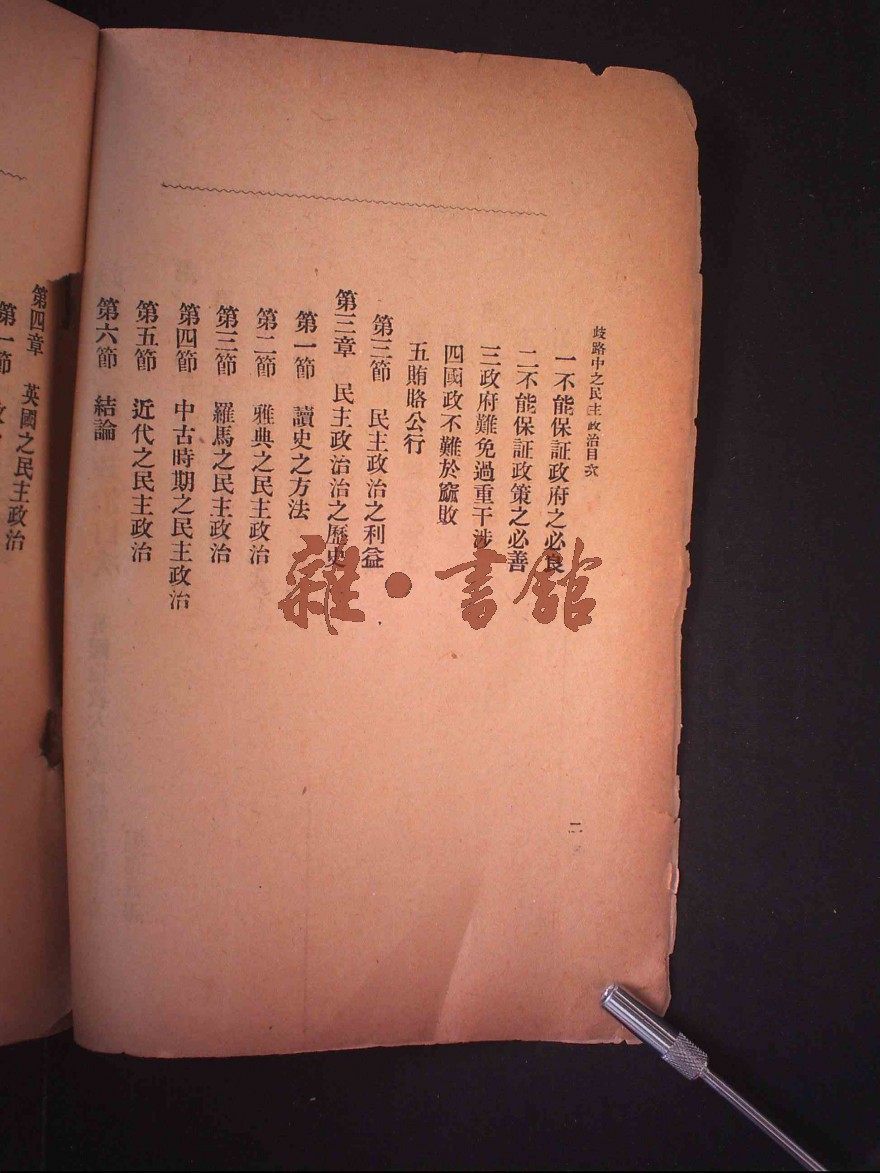 歧路中之民主政治目次
一不能保証政府之必良
二不能保証政策之必善
三政府難免過重干涉
四國政不難於窳敗
五賄賂公行
第三節　民主政治之利益
第三章　民主政治治之歷史
第一節　讀史之方法
第二節　雅典之民主政治
第三節　羅馬之民主政治
第四節　中古時期之民主政治
第五節　近代之民主政治
第六節　結論
二
第四章　英國之民主政治
第一節
雜·書館